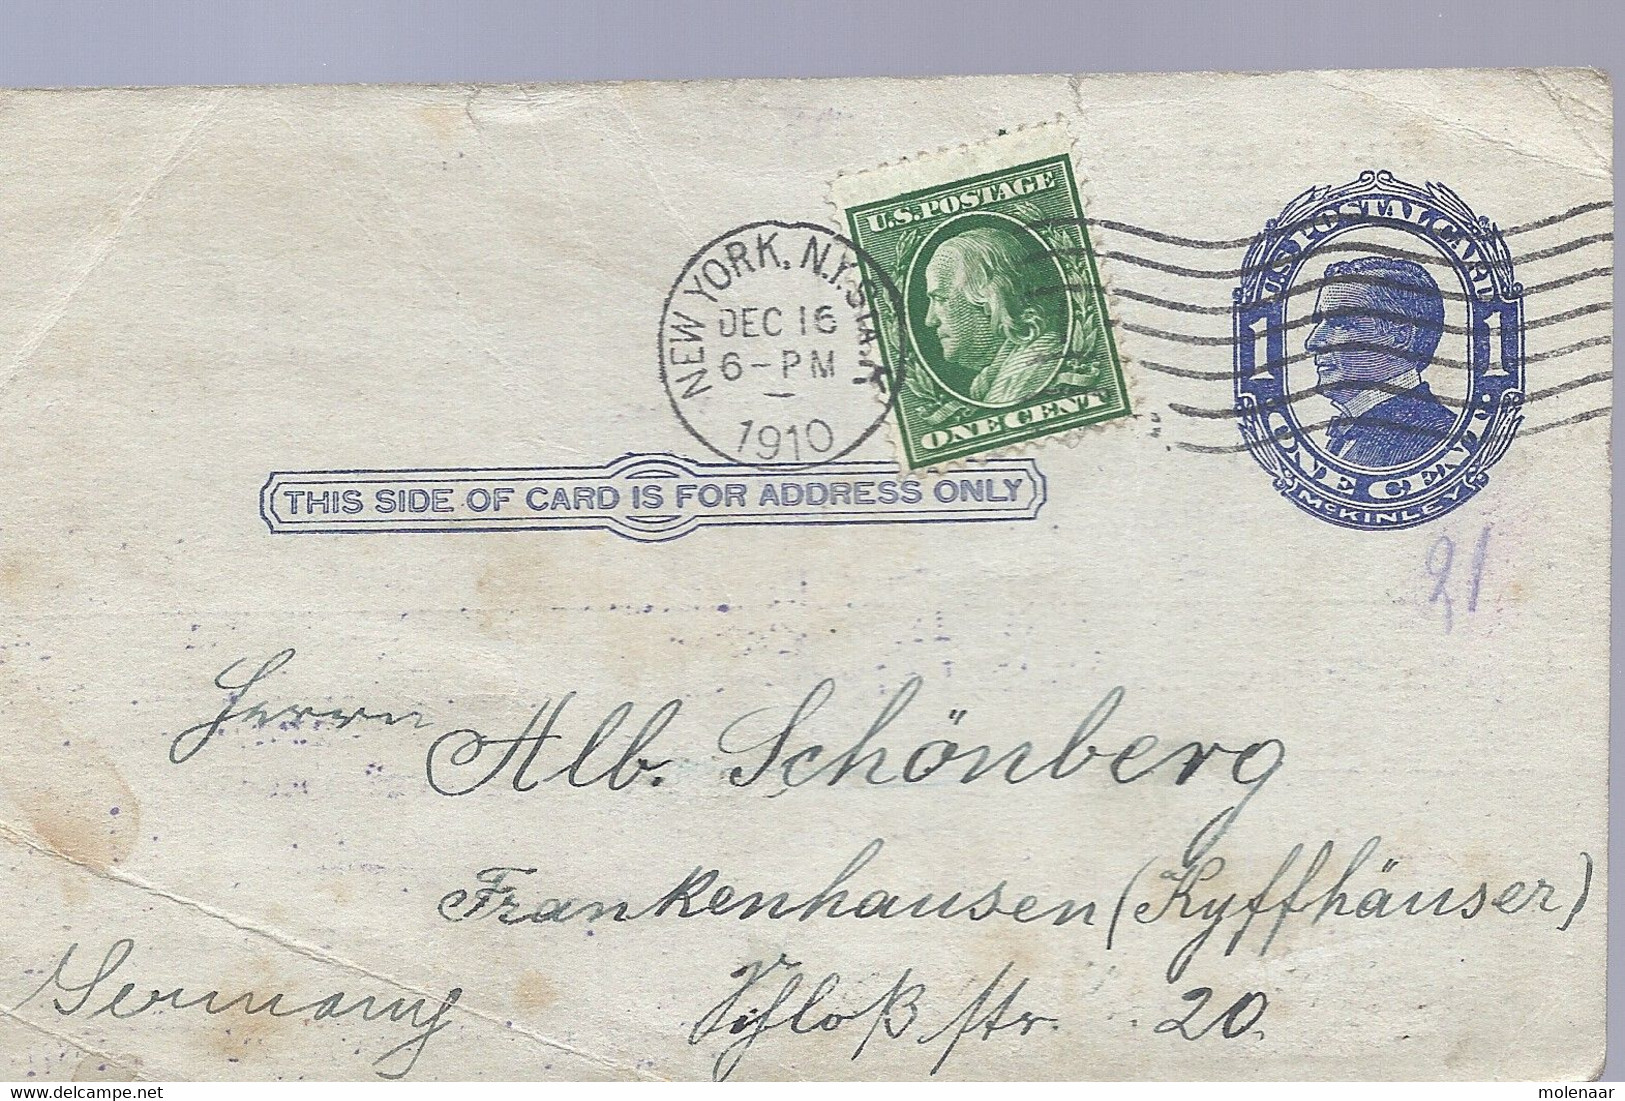 U.S. POSTAGE
ONE CENT
NEW YORK, N.Y. STA. Y
DEC 16
6-PM
1910
U.S. POSTAL CARD
1 1
ONE CENT
McKINLEY
THIS SIDE OF CARD IS FOR ADDRESS ONLY
21
Herrn Alb. Schönberg
Frankenhausen (Kyffhäuser)
Germany Schloßstr. 20.
www.delcampe.net
molenaar